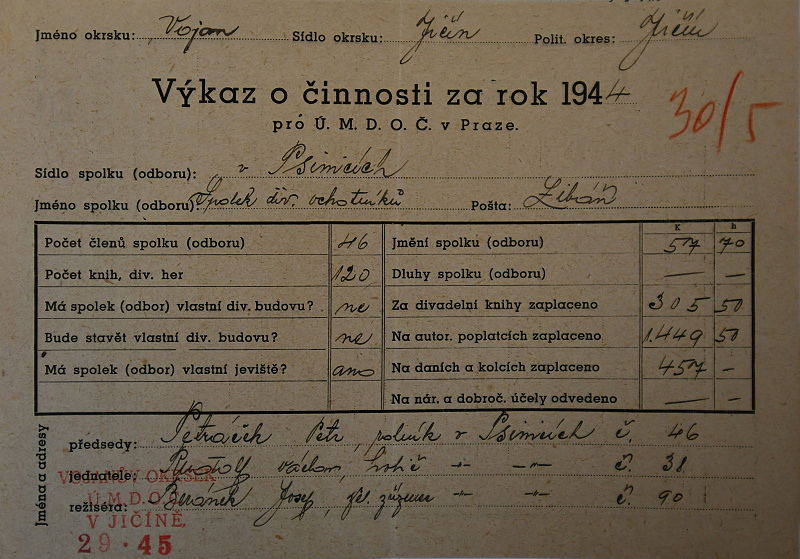 Jméno okrsku: Vojan Sídlo okrsku: Jičín Polit. okres: Jičín
Výkaz o činnosti za rok 1944
30/5
pro Ú. M. D. O. Č. v Praze.
Sídlo spolku (odboru): v Pšinicích
Jméno spolku (odboru): Spolek div. ochotníků Pošta: Libáň
K h
Počet členů spolku (odboru) 46 Jmění spolku (odboru) 57 70
Počet knih, div. her 120 Dluhy spolku (odboru) — —
Má spolek (odbor) vlastní div. budovu? ne Za divadelní knihy zaplaceno 305 50
Bude stavět vlastní div. budovu? ne Na autor. poplatcích zaplaceno 1.449 50
Má spolek (odbor) vlastní jeviště? ano Na daních a kolcích zaplaceno 457 —
Na nár. a dobroč. účely odvedeno — —
Jména a adresy
předsedy: Petráček Petr, rolník v Pšinicích č. 46
jednatele: václav, -"- -"- č. 38
režiséra: Beránek Josef, -"- -"- č. 90
VOJANŮV OKRSEK
Ú.M.D.O.Č.
V JIČÍNĚ.
29 · 45